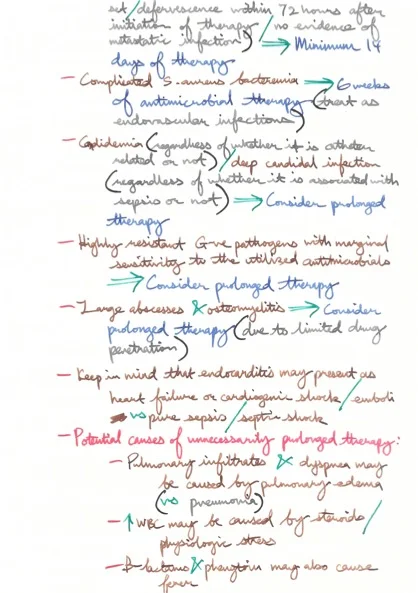 set / defervescence within 72 hours after
initiation of therapy / no evidence of
metastatic infection) ⇒ Minimum 14
days of therapy
- Complicated S. aureus bacteremia → 6 weeks
of antimicrobial therapy (treat as
endovascular infections)
- Candidemia (regardless of whether it is catheter
related or not) / deep candidal infection
(regardless of whether it is associated with
sepsis or not) ⇒ Consider prolonged
therapy
- Highly resistant G-ve pathogens with marginal
sensitivity to the utilized antimicrobials
⇒ Consider prolonged therapy
- Large abscesses & osteomyelitis ⇒ Consider
prolonged therapy (due to limited drug
penetration)
- Keep in mind that endocarditis may present as
heart failure or cardiogenic shock / emboli
vs pure sepsis / septic shock
- Potential causes of unnecessarily prolonged therapy:
- Pulmonary infiltrates & dyspnea may
be caused by pulmonary edema
(vs pneumonia)
- ↑ WBC may be caused by steroids /
physiologic stress
- β-lactams & phenytoin may also cause
fever